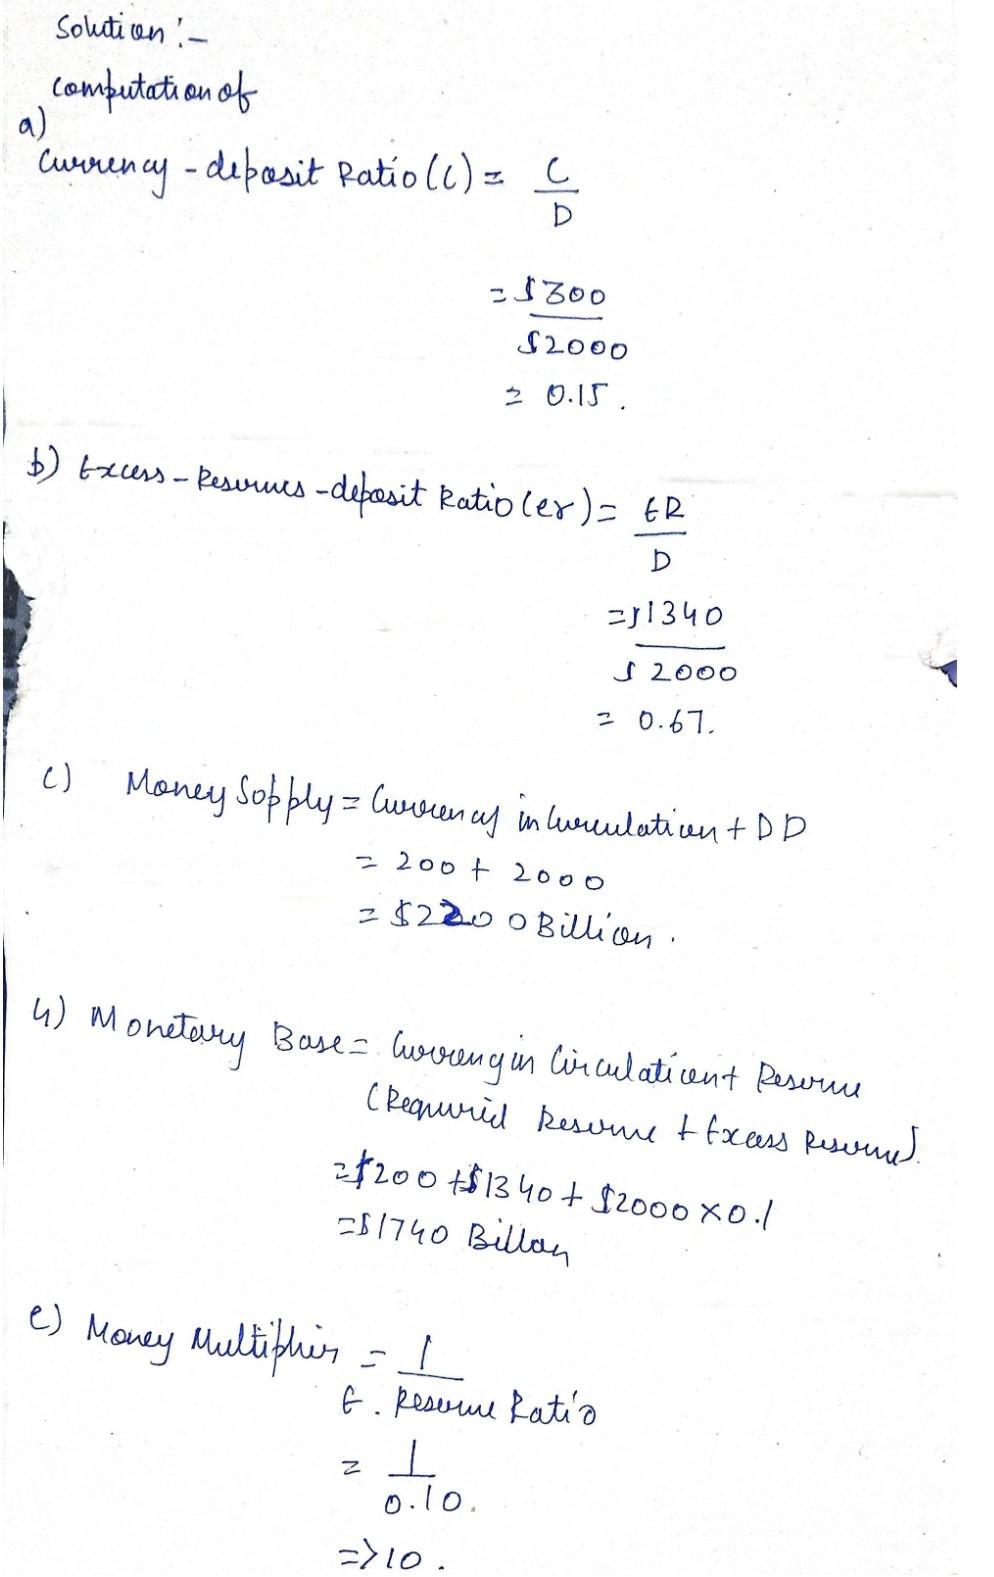 Solution :-
Computation of
a)
Currency - deposit Ratio (C) = C
D
= $300
$2000
= 0.15.
b) Excess - Reserves - deposit Ratio (er) = ER
D
= $1340
$2000
= 0.67.
c) Money Sopply = Currency in Curculation + DD
= 200 + 2000
= $2200 Billion.
4) Monetary Base = Currency in Circulation + Reserve
(Required Reserve + Excess Reserve).
= $200 + $1340 + $2000 x 0.1
= $1740 Billon
e) Money Multiplier = 1
E. Reserve Ratio
= 1
0.10.
=> 10.